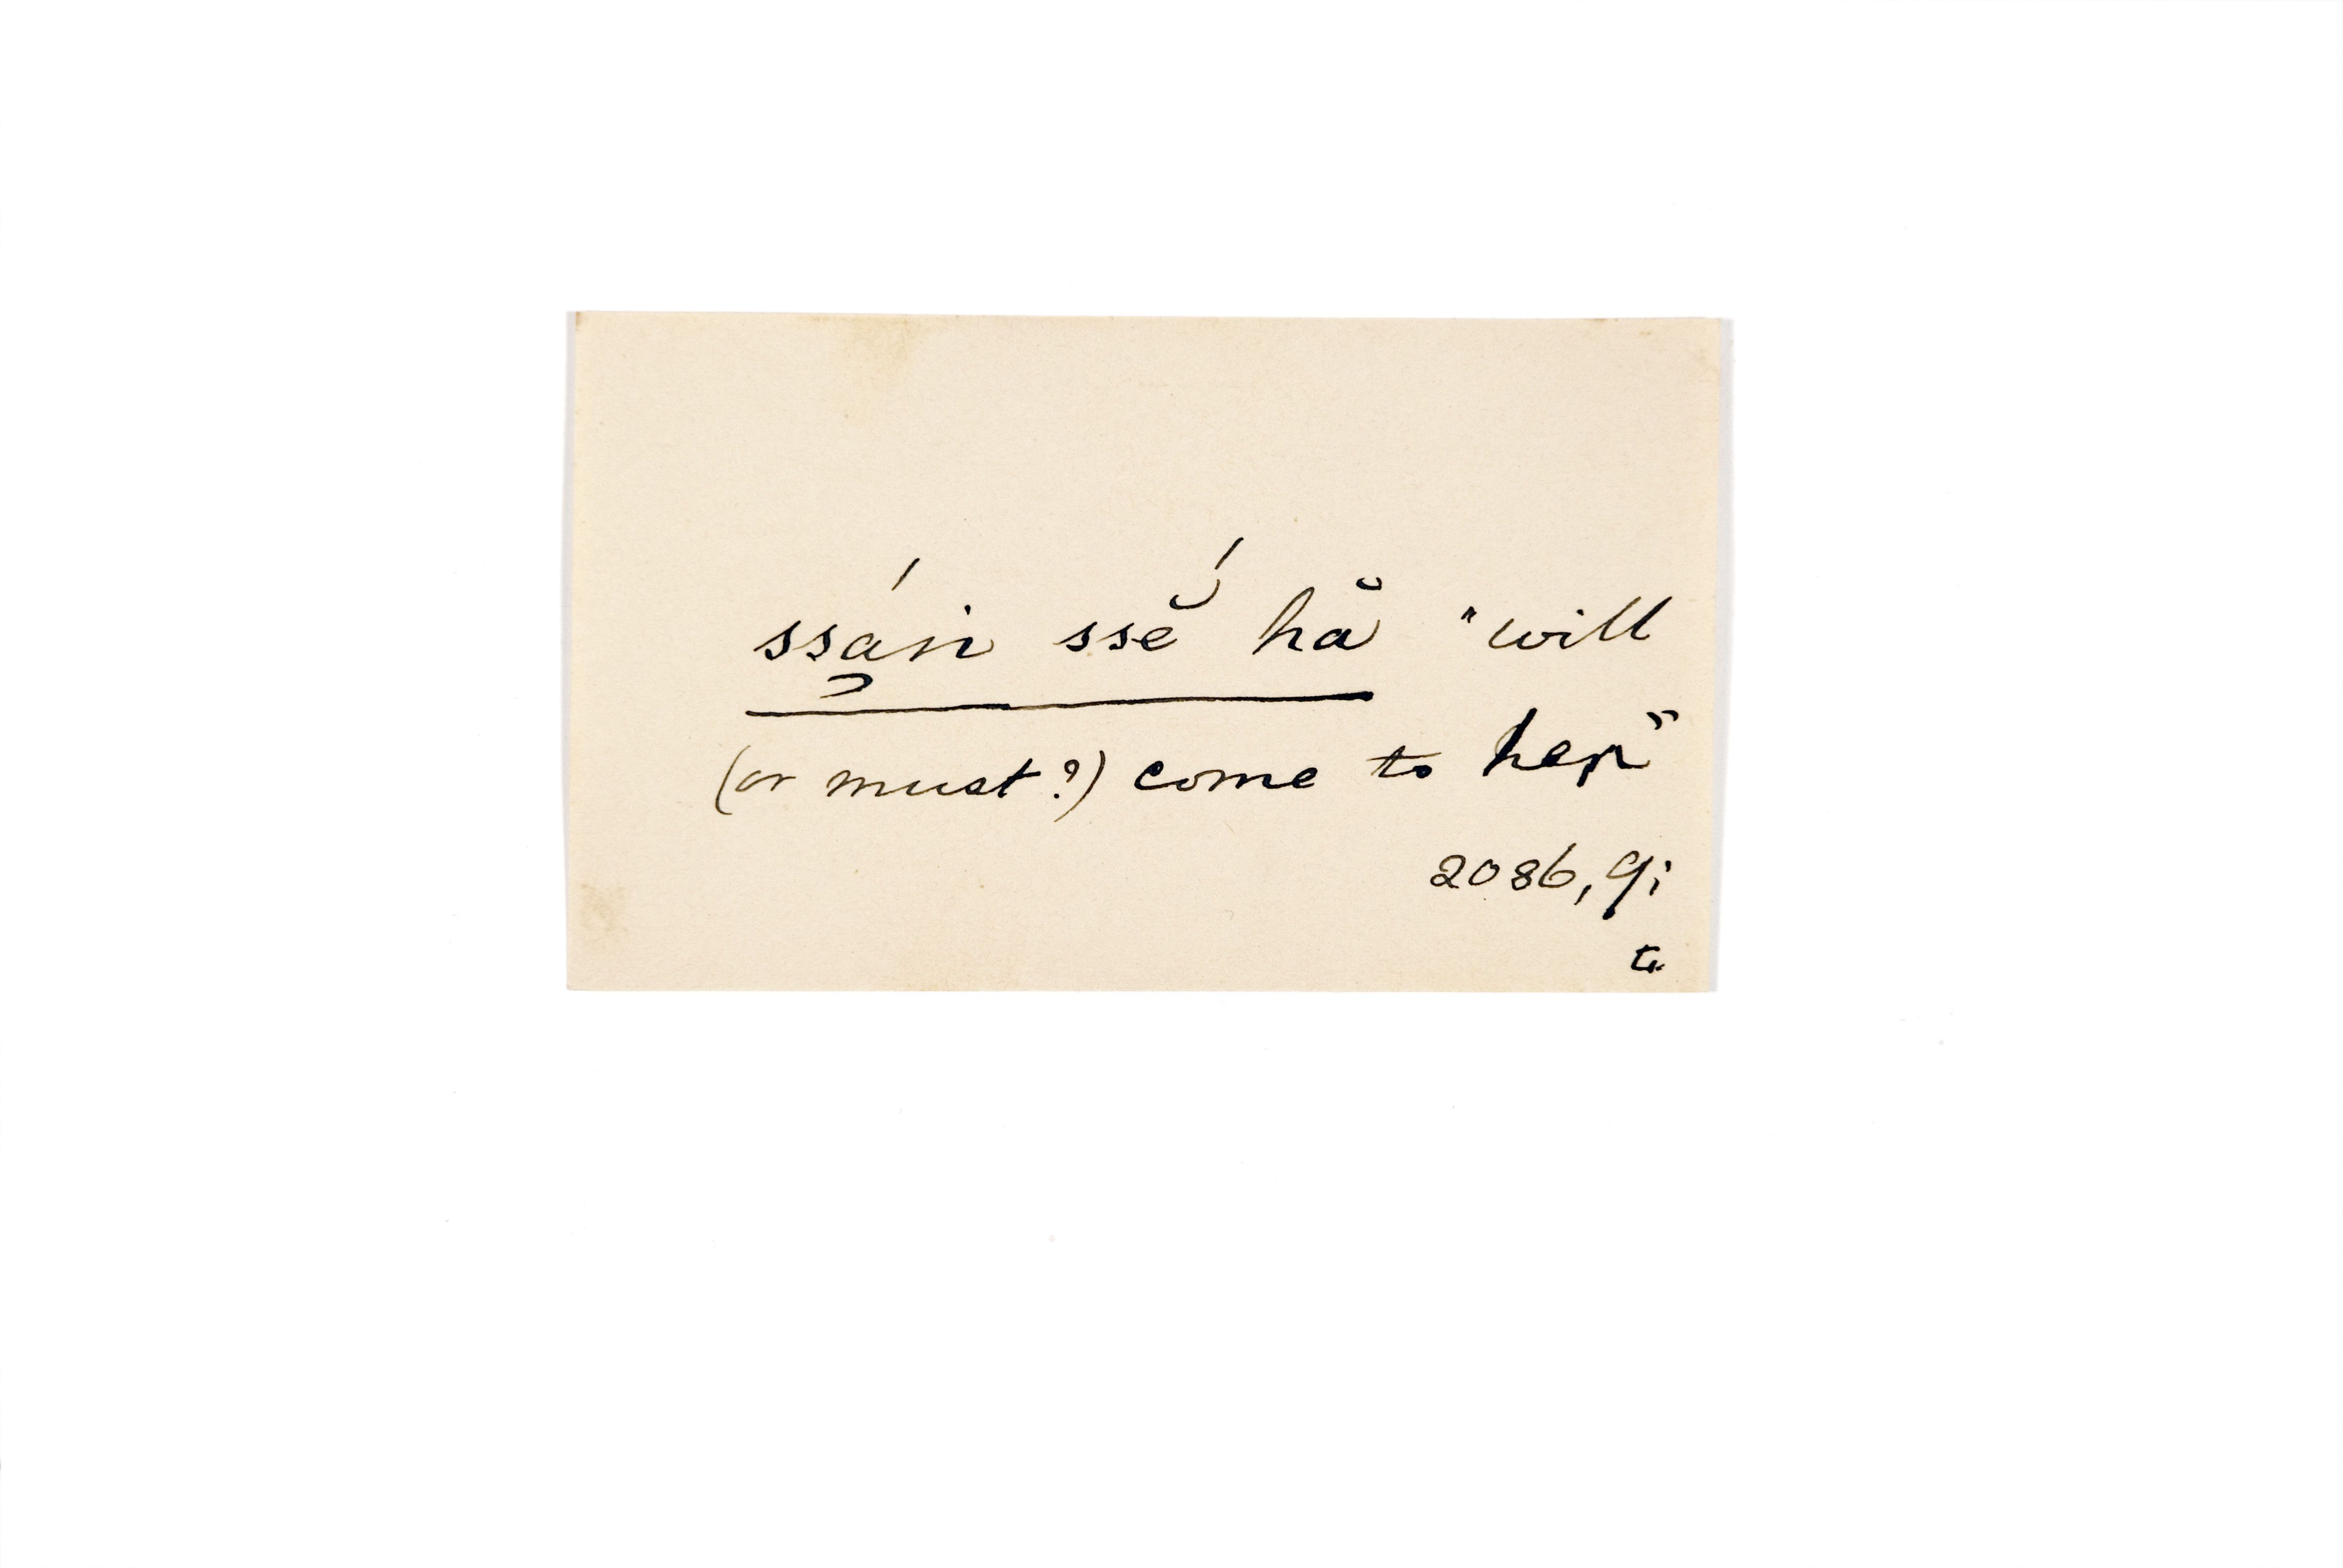 ssa̡ń ssĕ́ hă "will
(or must?) come to her"
2086, 9;